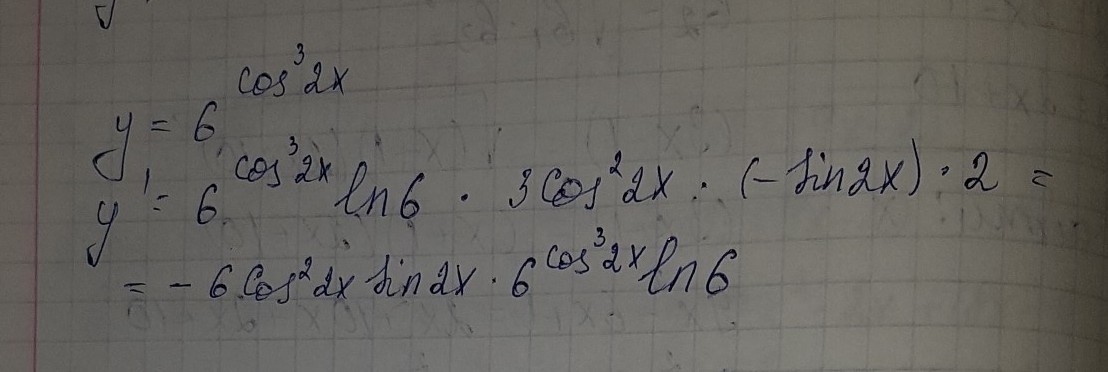 y = 6^cos³2x
y' = 6^cos³2x ln6 · 3cos²2x · (-sin2x) · 2 =
= - 6 cos²2x sin2x · 6^cos³2x ln6